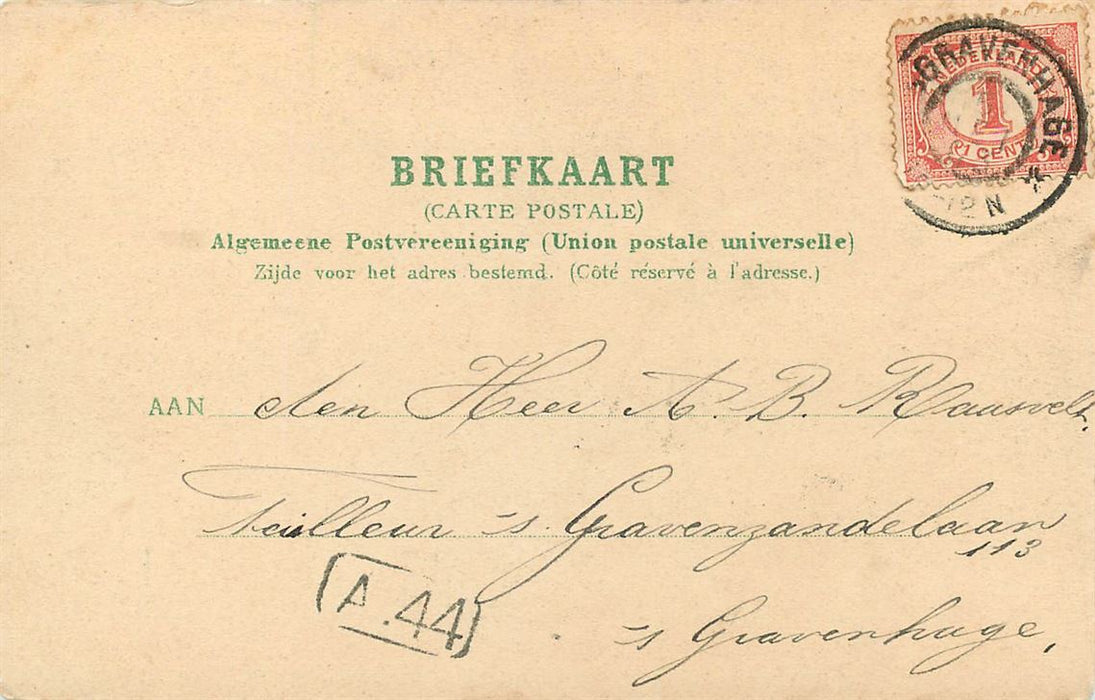 'SGRAVENHAGE
NEDERLAND
1
1 CENT
12 N
BRIEFKAART
(CARTE POSTALE)
Algemeene Postvereeniging (Union postale universelle)
Zijde voor het adres bestemd. (Côté réservé à l'adresse.)
AAN den Heer A. B. Raasveldt,
Tailleur 's Gravenzandelaan
113
's Gravenhage,
A.44